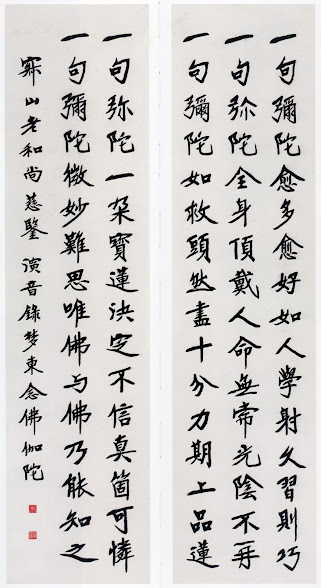 一句彌陀愈多愈好如人學射久習則巧
一句弥陀全身頂戴人命無常光陰不再
一句彌陀如救頭然盡十分力期上品蓮
一句弥陀一朶寶蓮決定不信真箇可憐
一句彌陀微妙難思唯佛与佛乃能知之
寐山老和尚慈鑒 演音錄夢東念佛伽陀